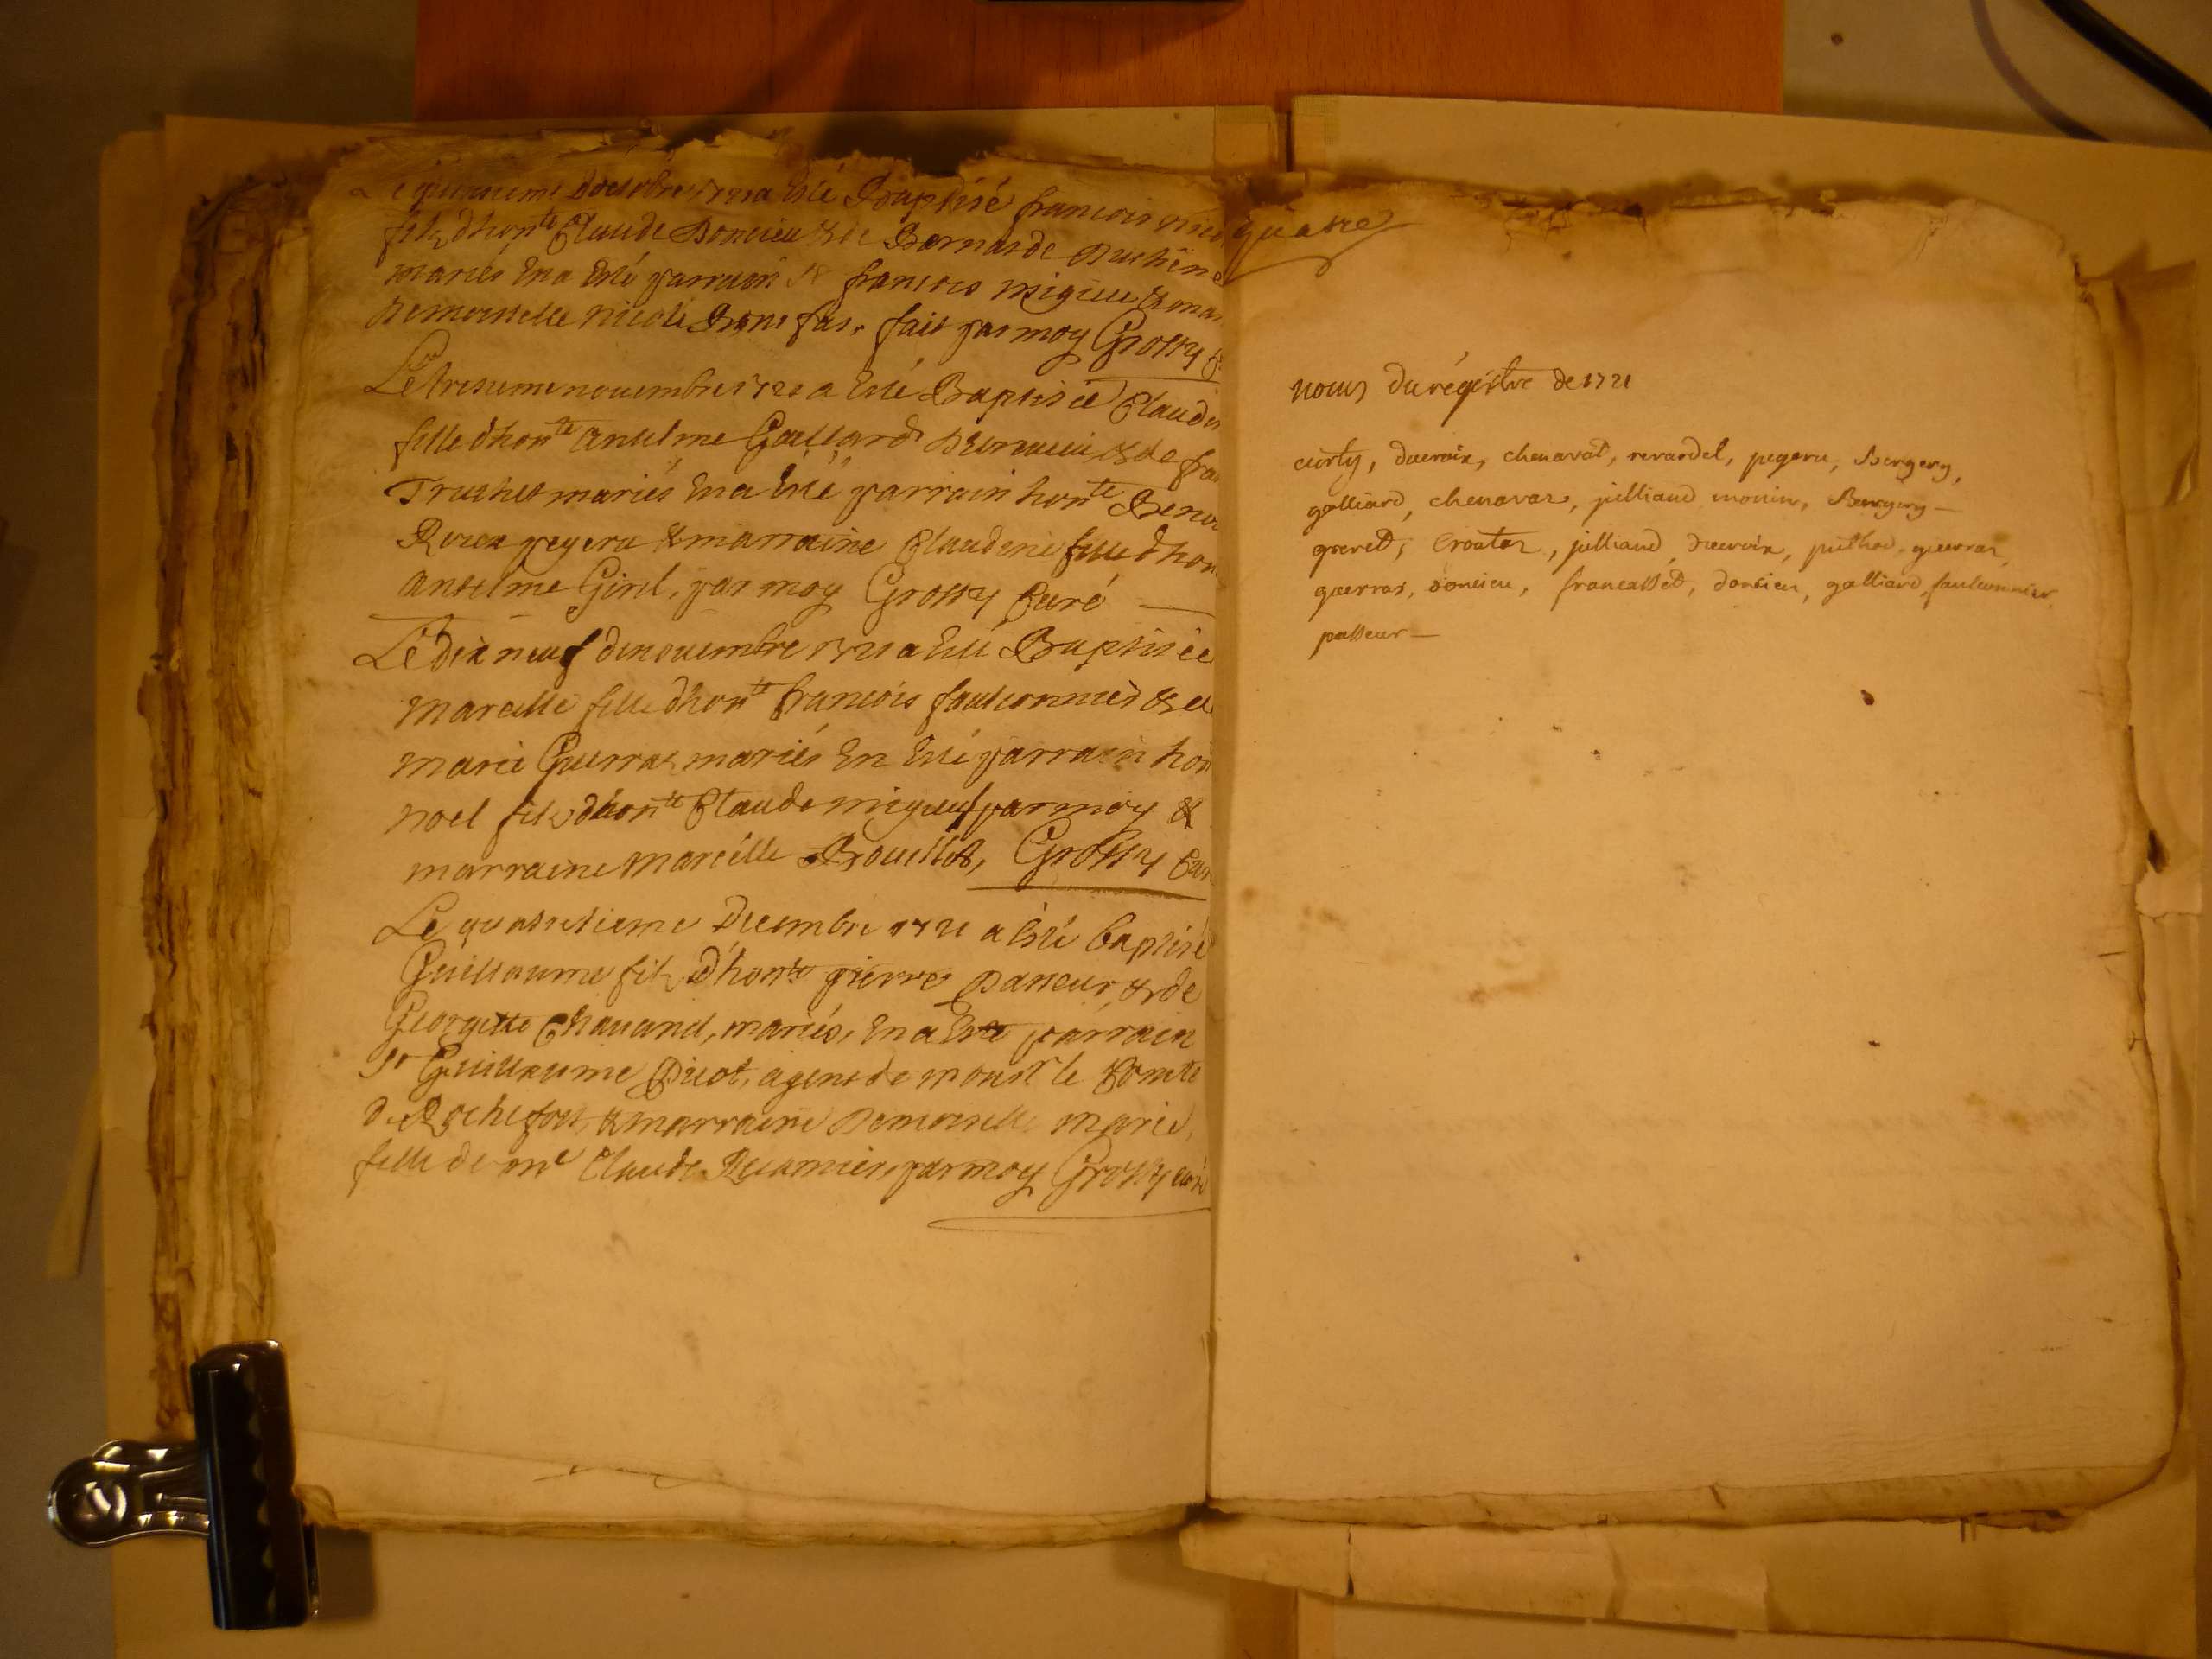 Le quinzieme doctobre 1721 a esté Baptisé francois
filz dhonte Claude Doncieu & de Bernarde Duchêne
mariés En a Esté parrain Sr francois migieu & mar
Demoiselle nicole fait par moy Grossy
Le tresieme nouembre 1721 a esté Baptisée Claudin
fille dhonte anselme Galliard & de fra
Truchet mariés En a Esté parrain honte Beno
Roux pegeru & marraine Claudine fille dhon
anselme Girel, par moy Grossy Curé
Le dix neuf de nouembre 1721 a esté Baptisée
marcelle fille dhonte francois faulconnier & de
marie Guerraz mariés En Esté parrain hon
noel filz dhonte Claude migieu par moy &
marraine marcelle Brouillet, Grossy Cur
Le quatrelieme Decembre 1721 a Esté baptisé
Guillaume filz d'honte pierre passeur, & de
Georgette Chauand, mariés, En a Este parrain
Sr Guillaume Picot, agent de monsr le Comte
de Rochefort, & marraine Demoiselle marie,
fille de me Claude Recamier par moy Grossy curé
quatre
noms du régistre de 1721
curty, ducroix, chenaval, revardel, pegeru, Bergery,
galliard, chenavaz, julliand monin, Bergery -
greret, Croutaz, julliand ducroix, puthod, guerraz,
guerras, doncieu, francallet, doncieu, galliard, faulconnier,
passeur -